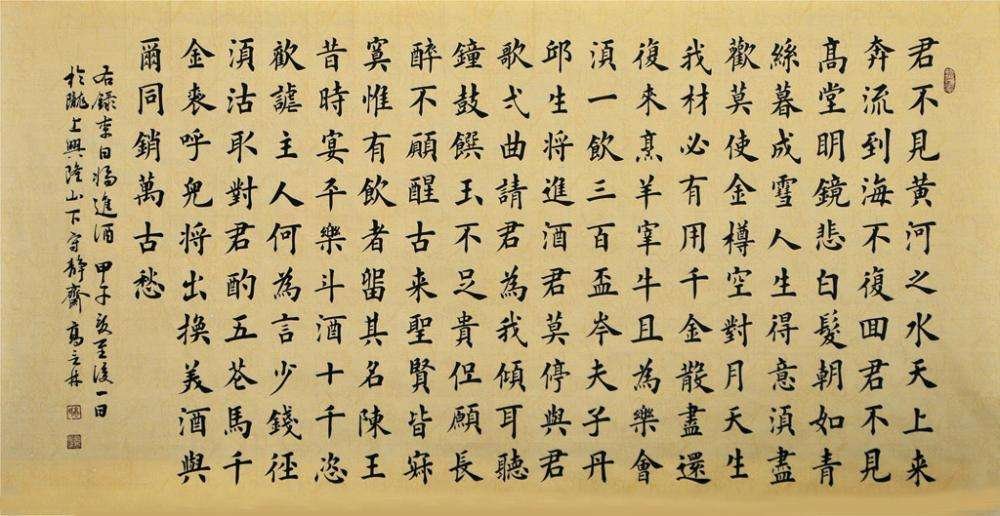 君不見黃河之水天上来
奔流到海不復囬君不見
高堂明鏡悲白髮朝如青
絲暮成雪人生得意湏盡
歡莫使金樽空對月天生
我材必有用千金散盡還
復来烹羊宰牛且為樂會
湏一飲三百盃岑夫子丹
邱生将進酒君莫停與君
歌弌曲請君為我傾耳聽
鐘鼓饌玉不足貴但願長
醉不願醒古来聖賢皆寂
寞惟有飲者留其名陳王
昔時宴平樂斗酒十千恣
歡謔主人何為言少錢徑
湏沽取對君酌五花馬千
金裘呼兒将出換美酒與
爾同銷萬古愁
右錄李白将進酒 甲子夏至後一日
於隴上興隆山下守靜齋 高立林